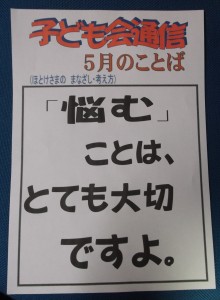 子ども会通信
5月のことば
(ほとけさまの まなざし・考え方)
「悩む」
ことは、
とても大切
ですよ。